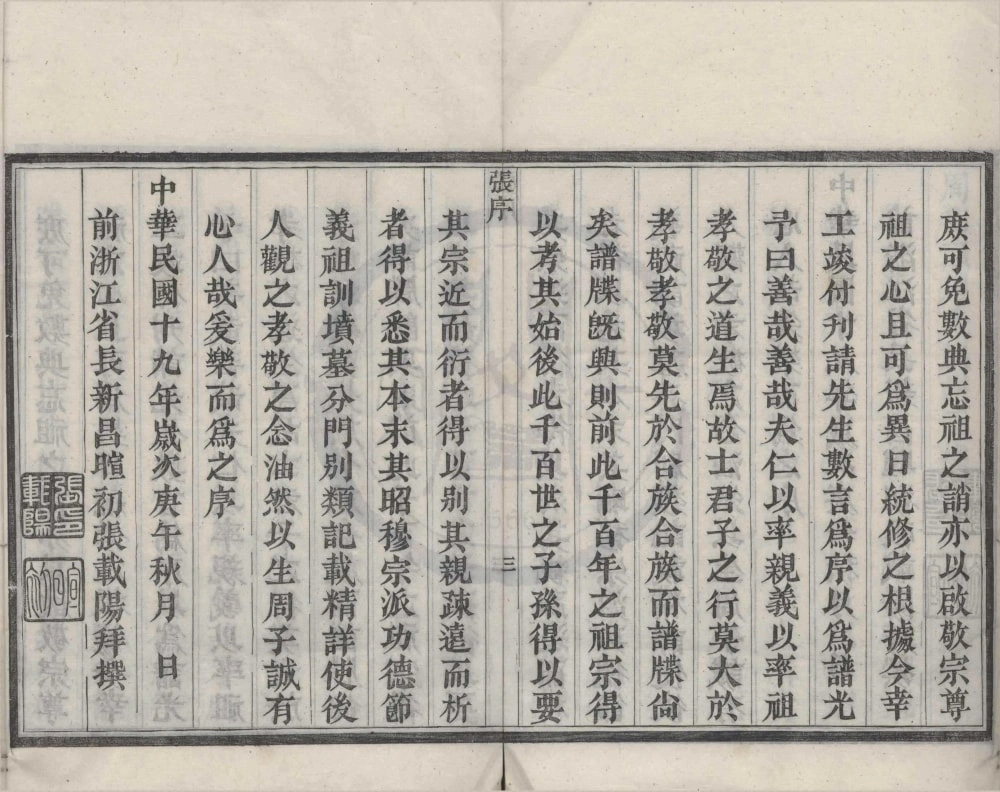 庶可免數典忘祖之誚亦以啟敬宗尊
祖之心且可爲異日統修之根據今幸
工竣付刊請先生數言爲序以爲譜光
予曰善哉善哉夫仁以率親義以率祖
孝敬之道生焉故士君子之行莫大於
孝敬孝敬莫先於合族合族而譜牒尙
矣譜牒旣興則前此千百年之祖宗得
以考其始後此千百世之子孫得以要
張序
三
其宗近而衍者得以别其親疎遠而析
者得以悉其本末其昭穆宗派功德節
義祖訓墳墓分門别類記載精詳使後
人觀之孝敬之念油然以生周子誠有
心人哉爰樂而爲之序
中華民國十九年歲次庚午秋月 日
前浙江省長新昌暄初張載陽拜撰
張印載陽
暄初